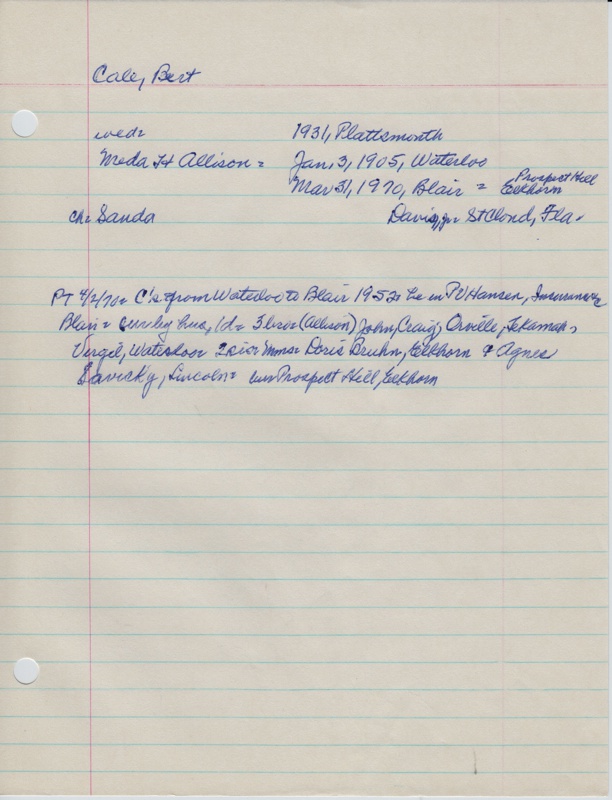 Cale, Bert
wed= 1931, Plattsmonth
Meda H Allison = Jan, 3, 1905, Waterloo
Mar 31, 1970, Blair = Prospect Hill Elkhorn
ch= Sanda Davis, jr= St Cloud, Fla.
PT 4/2/70= C's from Waterloo to Blair 1952= he in PV Hansen, Insurance,
Blair= surv by hus, 1d= 3 bros (Allison) John, Craig, Orville, Tekamah,
Vergil, Waterloo= 2 sis= Mmes Doris Bruhn, Elkhorn & Agnes
Savicky, Lincoln= Prospect Hill, Elkhorn